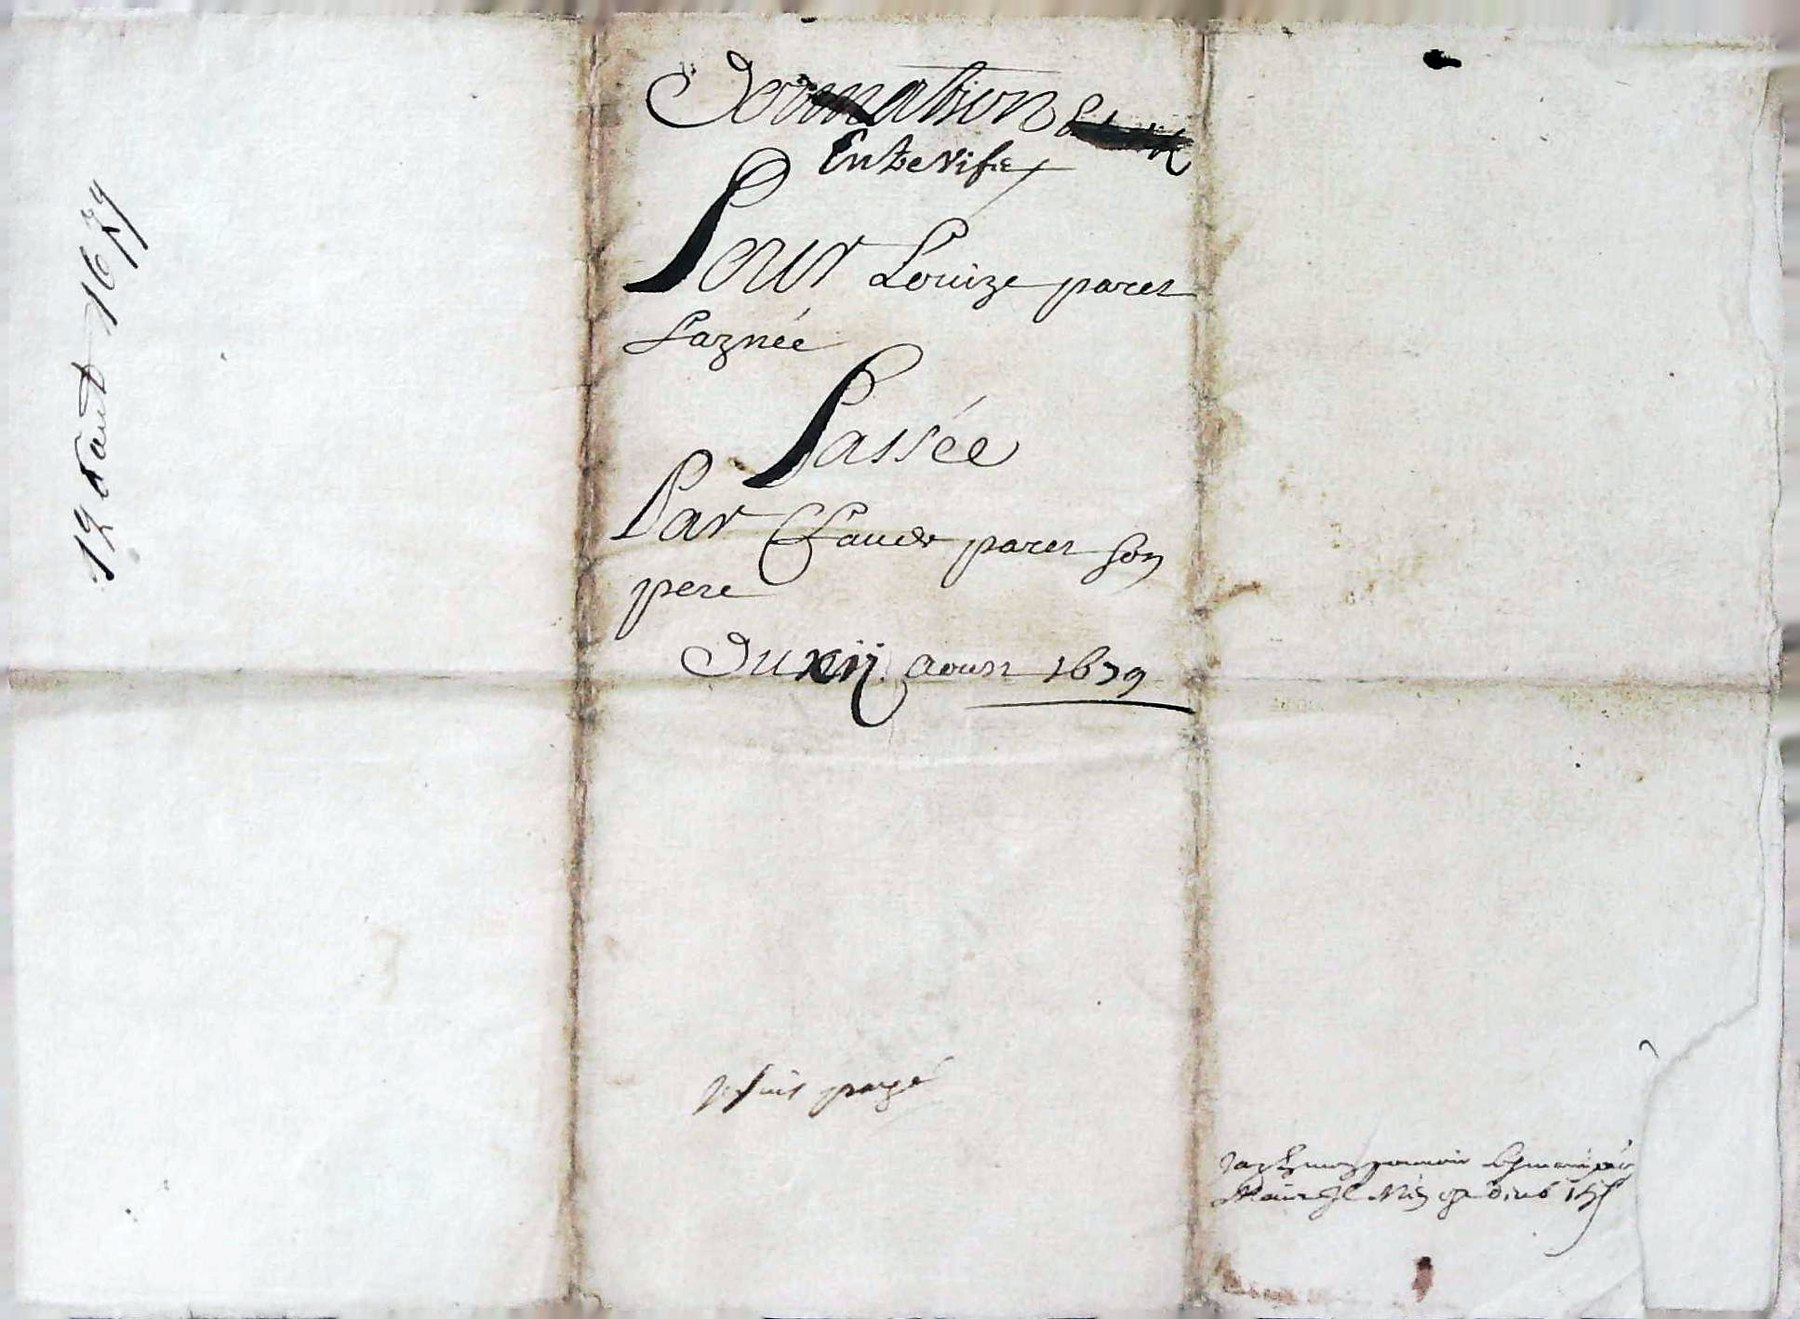 12 Aout 1679
Donnation
Entre vifs
Pour Louize paret
Laznée
Passée
Par Claude paret son
pere
Du xij aoust 1679
Je suis payé